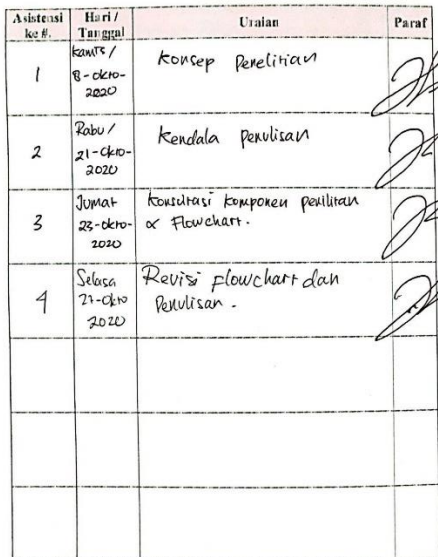 Asistensi ke #. Hari / Tanggal Uraian Paraf
1 Kamis / 8-okto-2020 Konsep Penelitian
2 Rabu / 21-Okto-2020 Kendala penulisan
3 Jumat 23-okto-2020 Konsultasi komponen penilitan & Flowchart.
4 Selasa 27-Okto 2020 Revisi flowchart dan Penulisan.